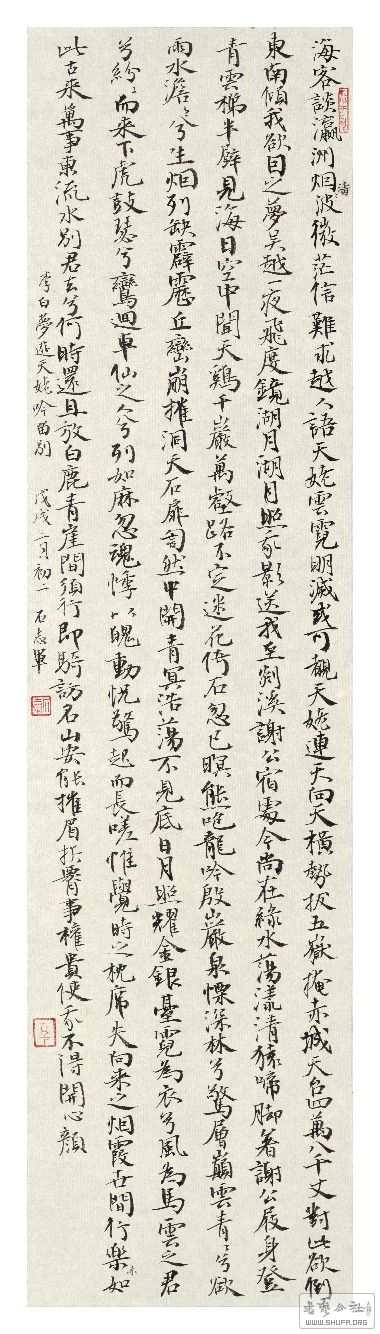 海客談瀛洲烟波微茫信難求越人語天姥雲霓明滅或可覩天姥連天向天橫勢拔五嶽掩赤城天台四萬八千丈對此欲倒
濤
東南傾我欲因之夢吳越一夜飛度鏡湖月湖月照我影送我至剡溪謝公宿處今尚在綠水蕩漾清猿啼脚著謝公屐身登
青雲梯半壁見海日空中聞天鷄千巖萬壑路不定迷花倚石忽已暝熊咆龍吟殷巖泉慄深林兮驚層巔雲青〻兮欲
雨水澹〻兮生烟列缺霹靂丘巒崩摧洞天石扉訇然中開青冥浩蕩不見底日月照耀金銀臺霓為衣兮風為馬雲之君
兮紛〻而来下虎鼓瑟兮鸞迴車仙之人兮列如麻忽魂悸以魄動怳驚起而長嗟惟覺時之枕席失向来之烟霞世間行樂如
亦
此古来萬事東流水別君去兮何時還且放白鹿青崖間須行即騎訪名山安能摧眉折腰事權貴使我不得開心顔
李白夢遊天姥吟留別 戊戌二月初二 石志軍
書藝公社
WWW.SHUFA.ORG